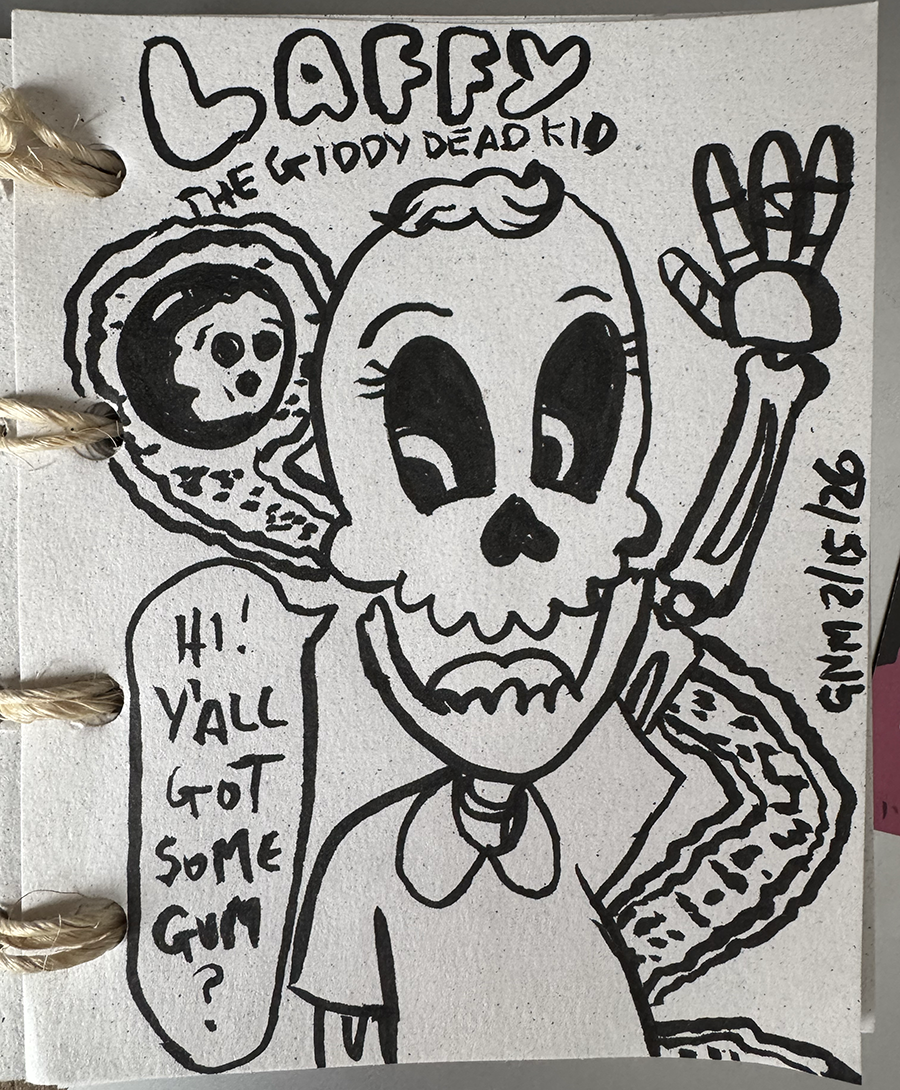 LAFFY
THE GIDDY DEAD KID
HI!
Y'ALL
GOT
SOME
GUM
?
GNM 2/15/26